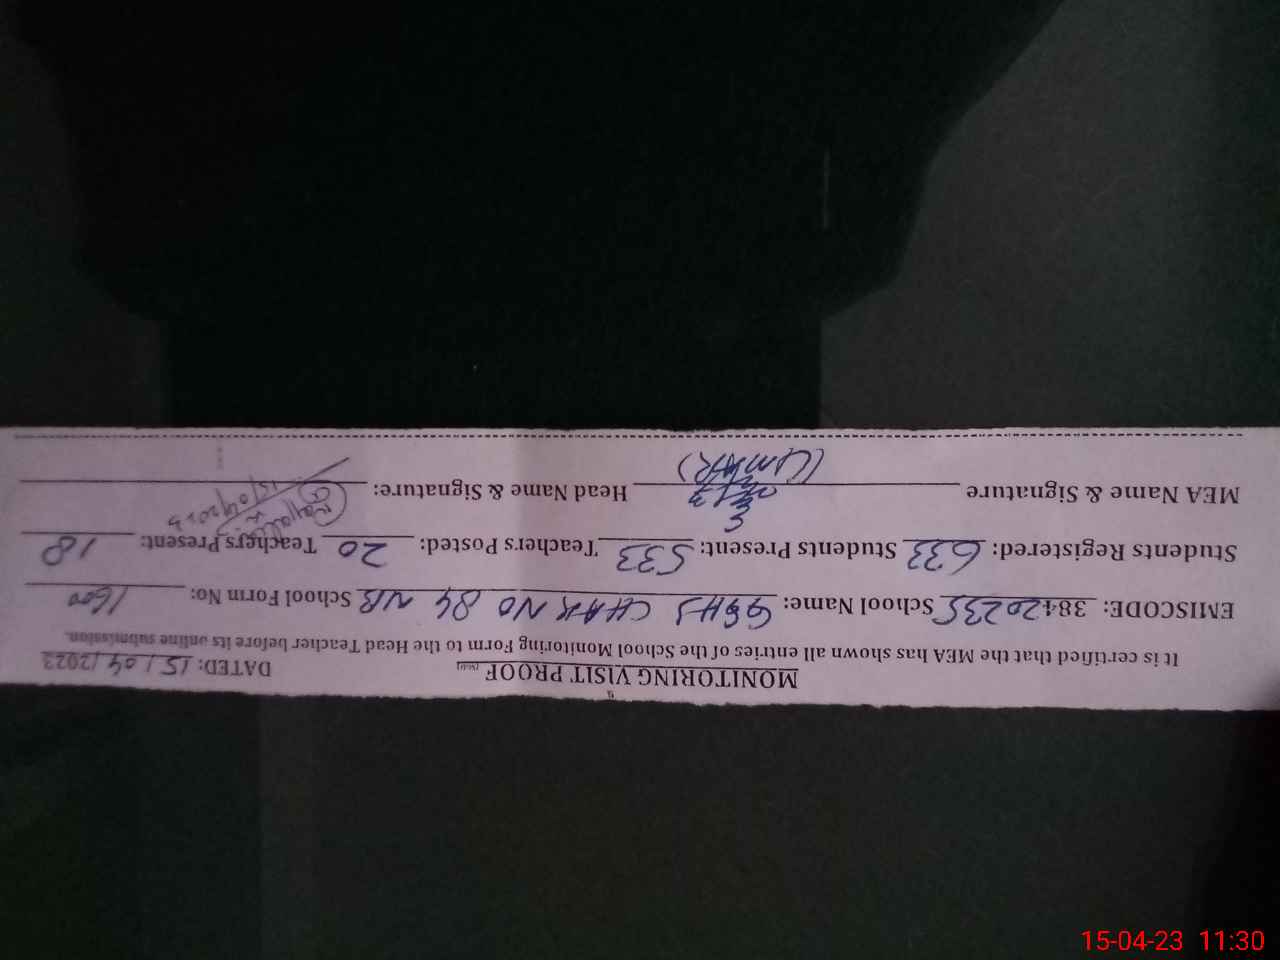 MONITORING VISIT PROOF DATED: 15/04/2023
It is certified that the MEA has shown all entries of the School Monitoring Form to the Head Teacher before its online submission.
EMISCODE: 38420235 School Name: GGHS CHAK NO 84 NB School Form No: 1600
Students Registered: 633 Students Present: 533 Teachers Posted: 20 Teachers Present: 18
MEA Name & Signature Head Name & Signature:
15/04/2023
15-04-23 11:30